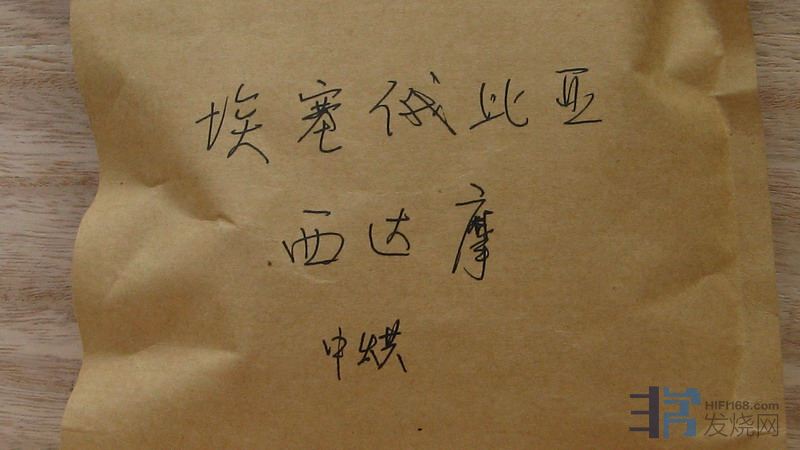 埃塞俄比亚
西达摩
中烘
HIFI168.com
发烧网